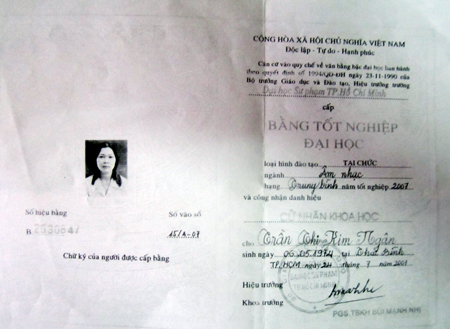 Số hiệu bằng
B
Số vào sổ
15/A-07
Chữ ký của người được cấp bằng
CỘNG HÒA XÃ HỘI CHỦ NGHĨA VIỆT NAM
Độc lập - Tự do - Hạnh phúc
Căn cứ vào quy chế về văn bằng bậc đại học ban hành
theo quyết định số 1994/QĐ-ĐH NGÀY 23-11-1990 của
Bộ trưởng Giáo dục và Đào tạo, Hiệu trưởng trường
Đại học Sư phạm TP.Hồ Chí Minh
cấp
BẰNG TỐT NGHIỆP
ĐẠI HỌC
loại hình đào tạo TẠI CHỨC
ngành Âm nhạc
hạng Trung bình năm tốt nghiệp 2007
và công nhận danh hiệu
CỬ NHÂN KHOA HỌC
cho Trần Thị Kim Ngân
sinh ngày 06.05.1974 tại
TP.HCM ngày 24 tháng 7 năm 2007
Hiệu trưởng
Khoa trưởng
PGS.TSKH BÙI MẠNH NHỊ